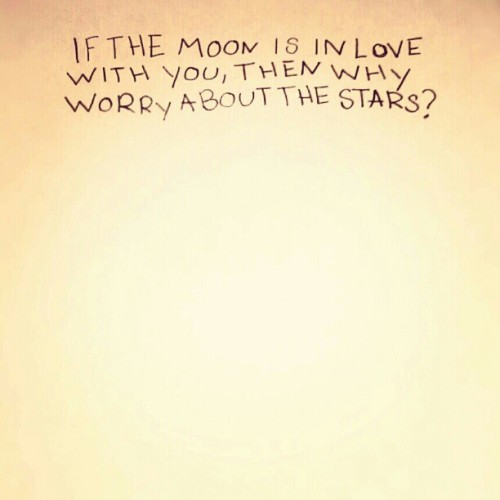 IF THE MOON IS IN LOVE
WITH YOU, THEN WHY
WORRY ABOUT THE STARS?